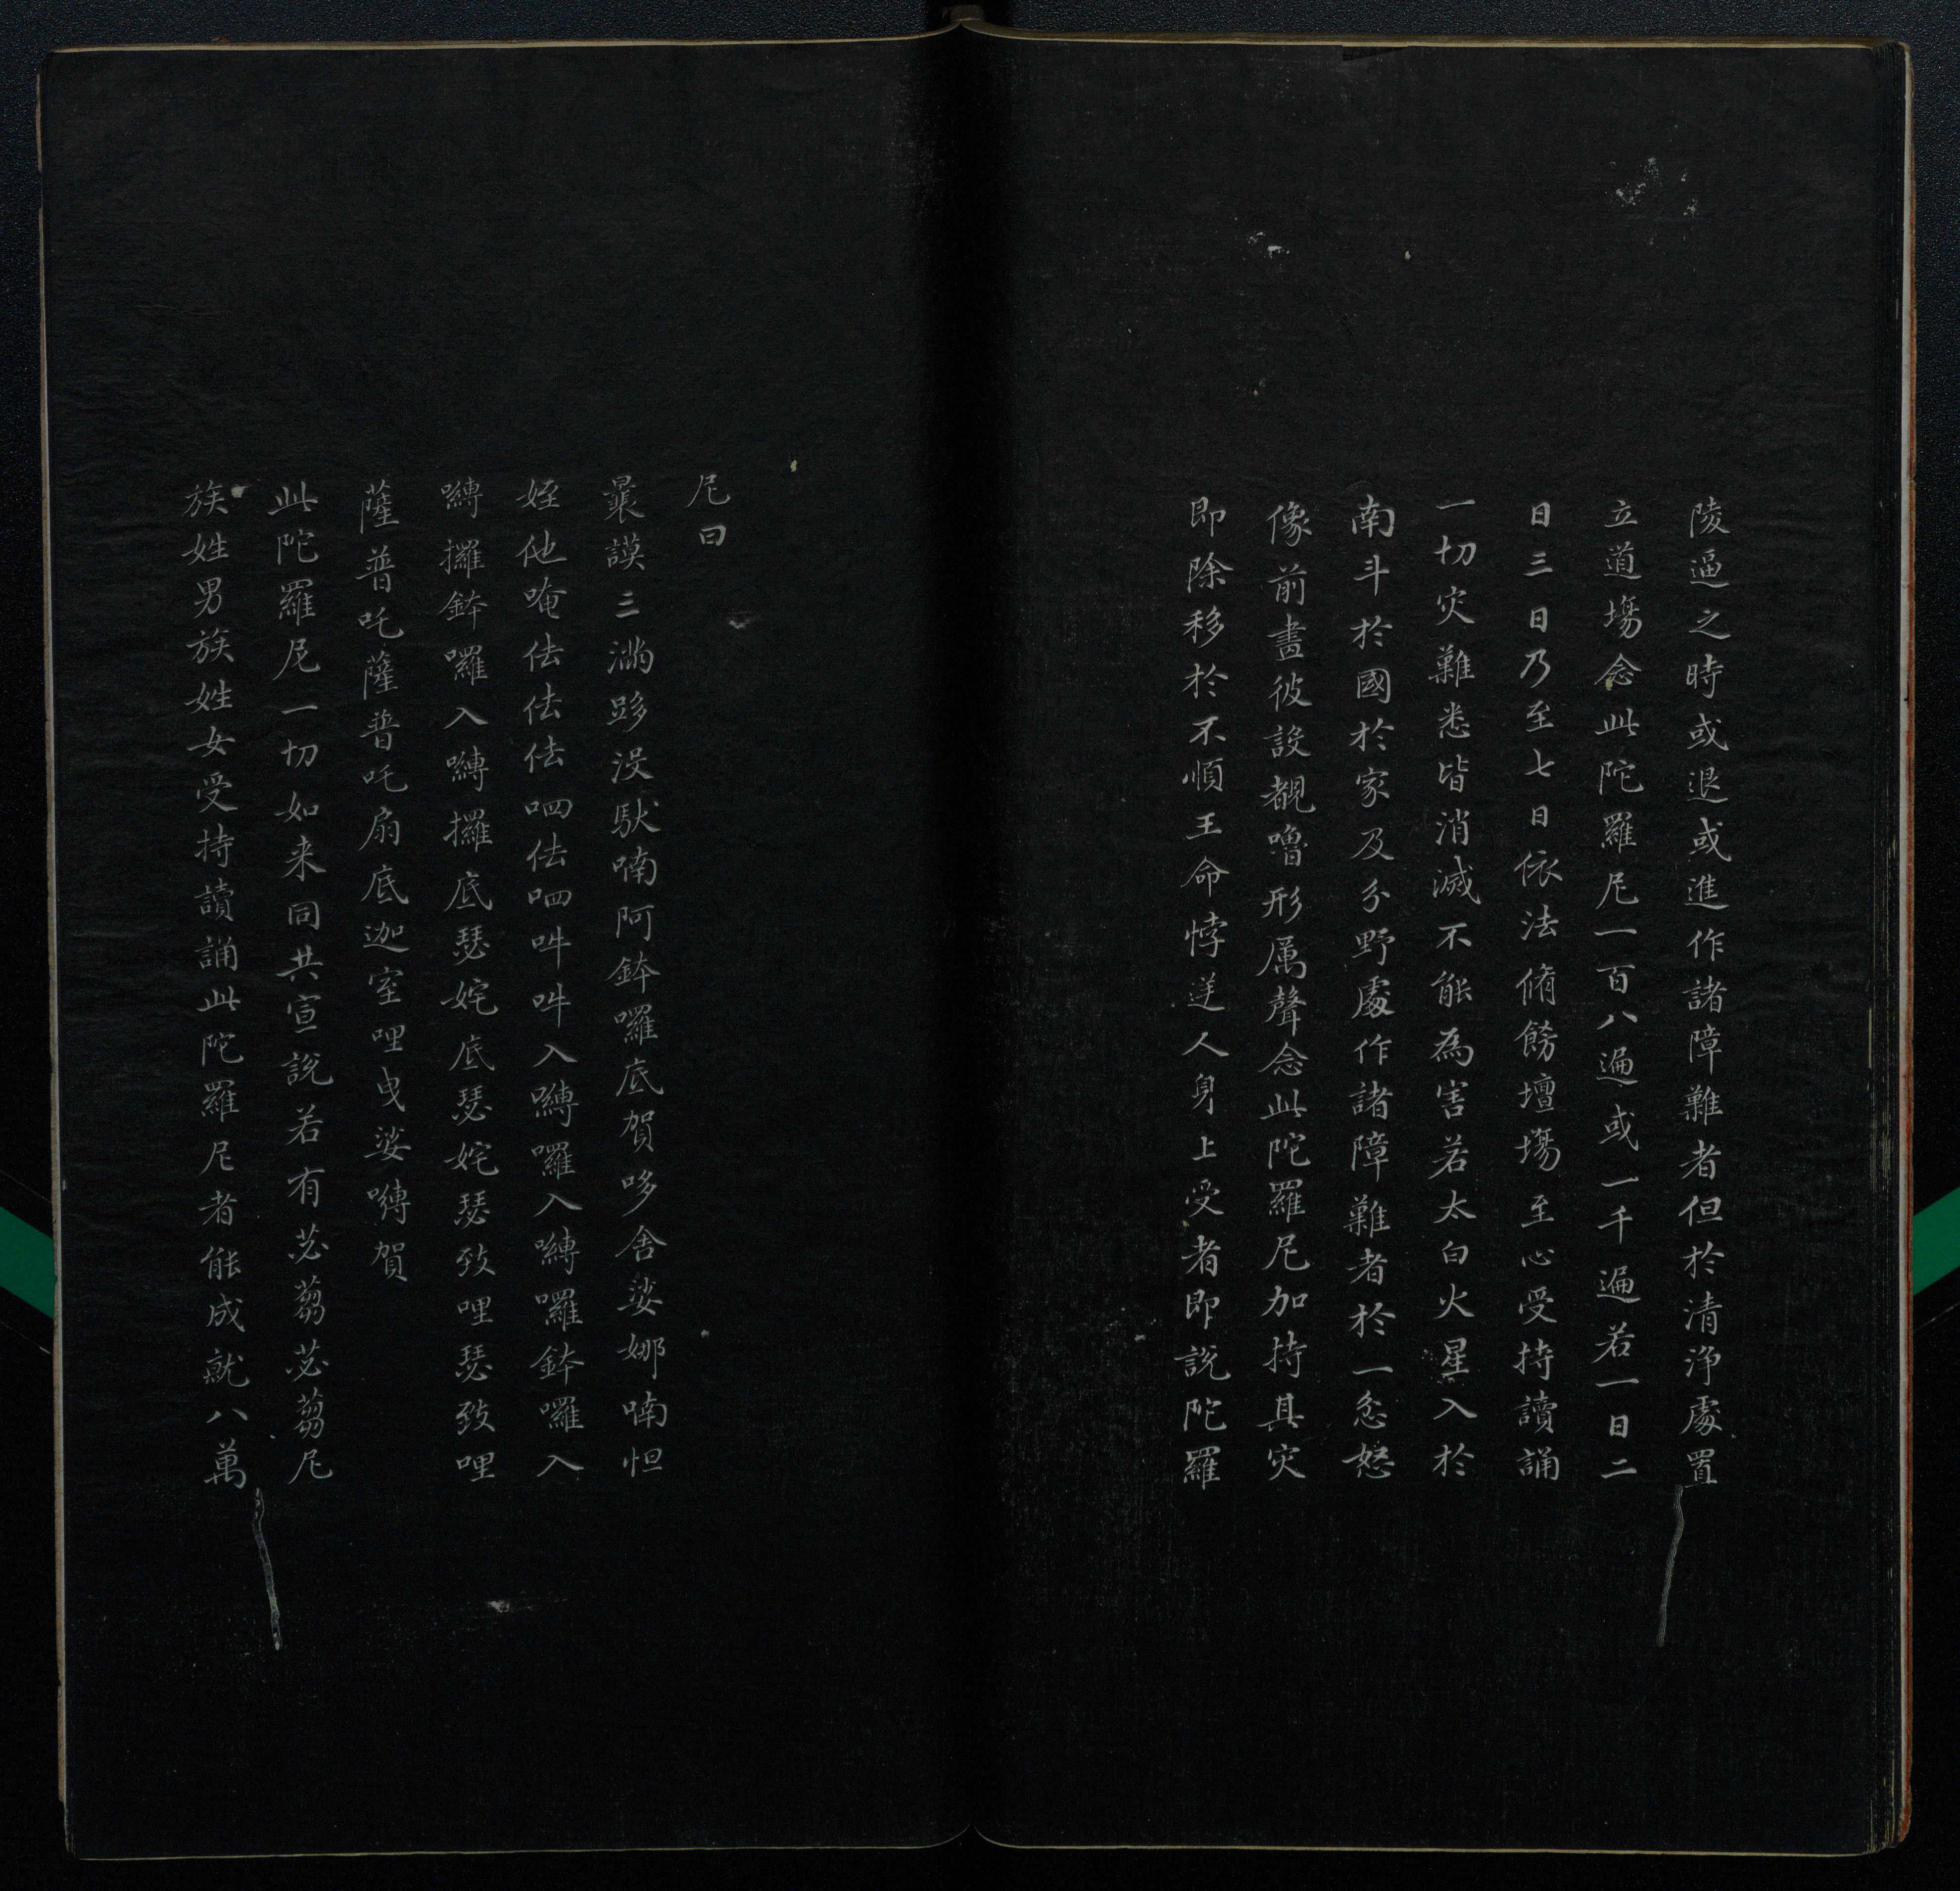 陵逼之時或退或進作諸障難者但於清淨處置
立道場念此陀羅尼一百八遍或一千遍若一日二
日三日乃至七日依法脩飾壇場至心受持讀誦
一切灾難悉皆消滅不能為害若太白火星入於
南斗於國於家及分野處作諸障難者於一忿怒
像前畫彼設覩嚕形厲聲念此陀羅尼加持其灾
即除移於不順王命悖逆人身上受者即說陀羅
尼曰
曩謨三滿跢沒馱喃阿鉢囉底賀哆舍娑娜喃怛
姪他唵佉佉佉呬佉呬吽吽入嚩囉入嚩囉鉢囉入
嚩攞鉢囉入嚩攞底瑟姹底瑟姹瑟致哩瑟致哩
薩普吒薩普吒扇底迦室哩曳娑嚩賀
此陀羅尼一切如来同共宣說若有苾蒭苾蒭尼
族姓男族姓女受持讀誦此陀羅尼者能成就八萬